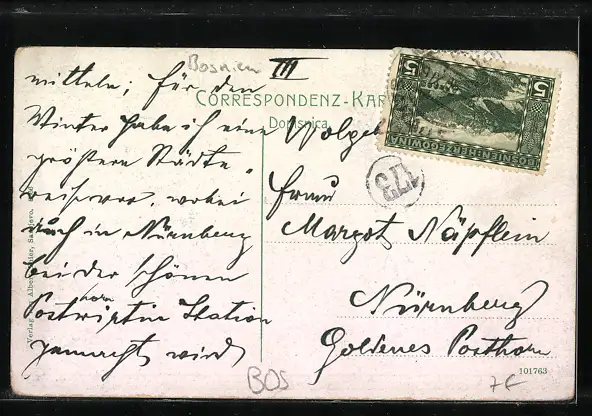 Bosnien III
CORRESPONDENZ-KAR
Dopisnica
mitteln; für den
Winter habe ich eine
größere Städte
wobei
auch in Nürnberg
bei der schönen
Posthornwirtin Station
gemacht wird
Wolgeb
Frau
Margot Näpflein
Nürnberg
Goldenes Posthorn
5 5
BOSNIEN-HERZEGOWINA
173
Verlag Albert Thier, Sarajevo.
101763
BOS
7€